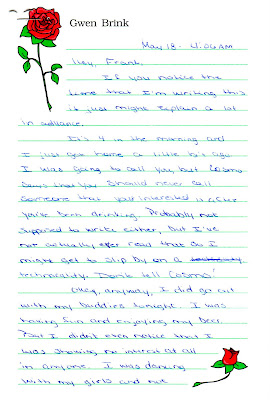 Gwen Brink
May 18 - 4:06AM
Hey, Frank.
If you notice the
time that I'm writing this
it just might explain a lot
in advance.
It's 4 in the morning and
I just got home a little bit ago.
I was going to call you but Cosmo
says that you should never call
someone that you're interested in after
you've been drinking. Probably not
supposed to write either, but I've
not actually ever read that so I
might get to slip by on a
technicality. Don't tell Cosmo!
Okay, anyway, I did go out
with my buddies tonight. I was
having fun and enjoying my beer.
But I didn't even notice that I
was showing no interest at all
in anyone. I was dancing
with my girls and not